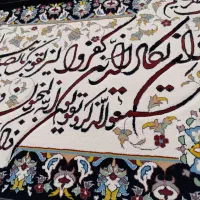 ان یکاد الذین کفروا لیزلقونک
سمعوا الذکر و یقولون انه لمجنون